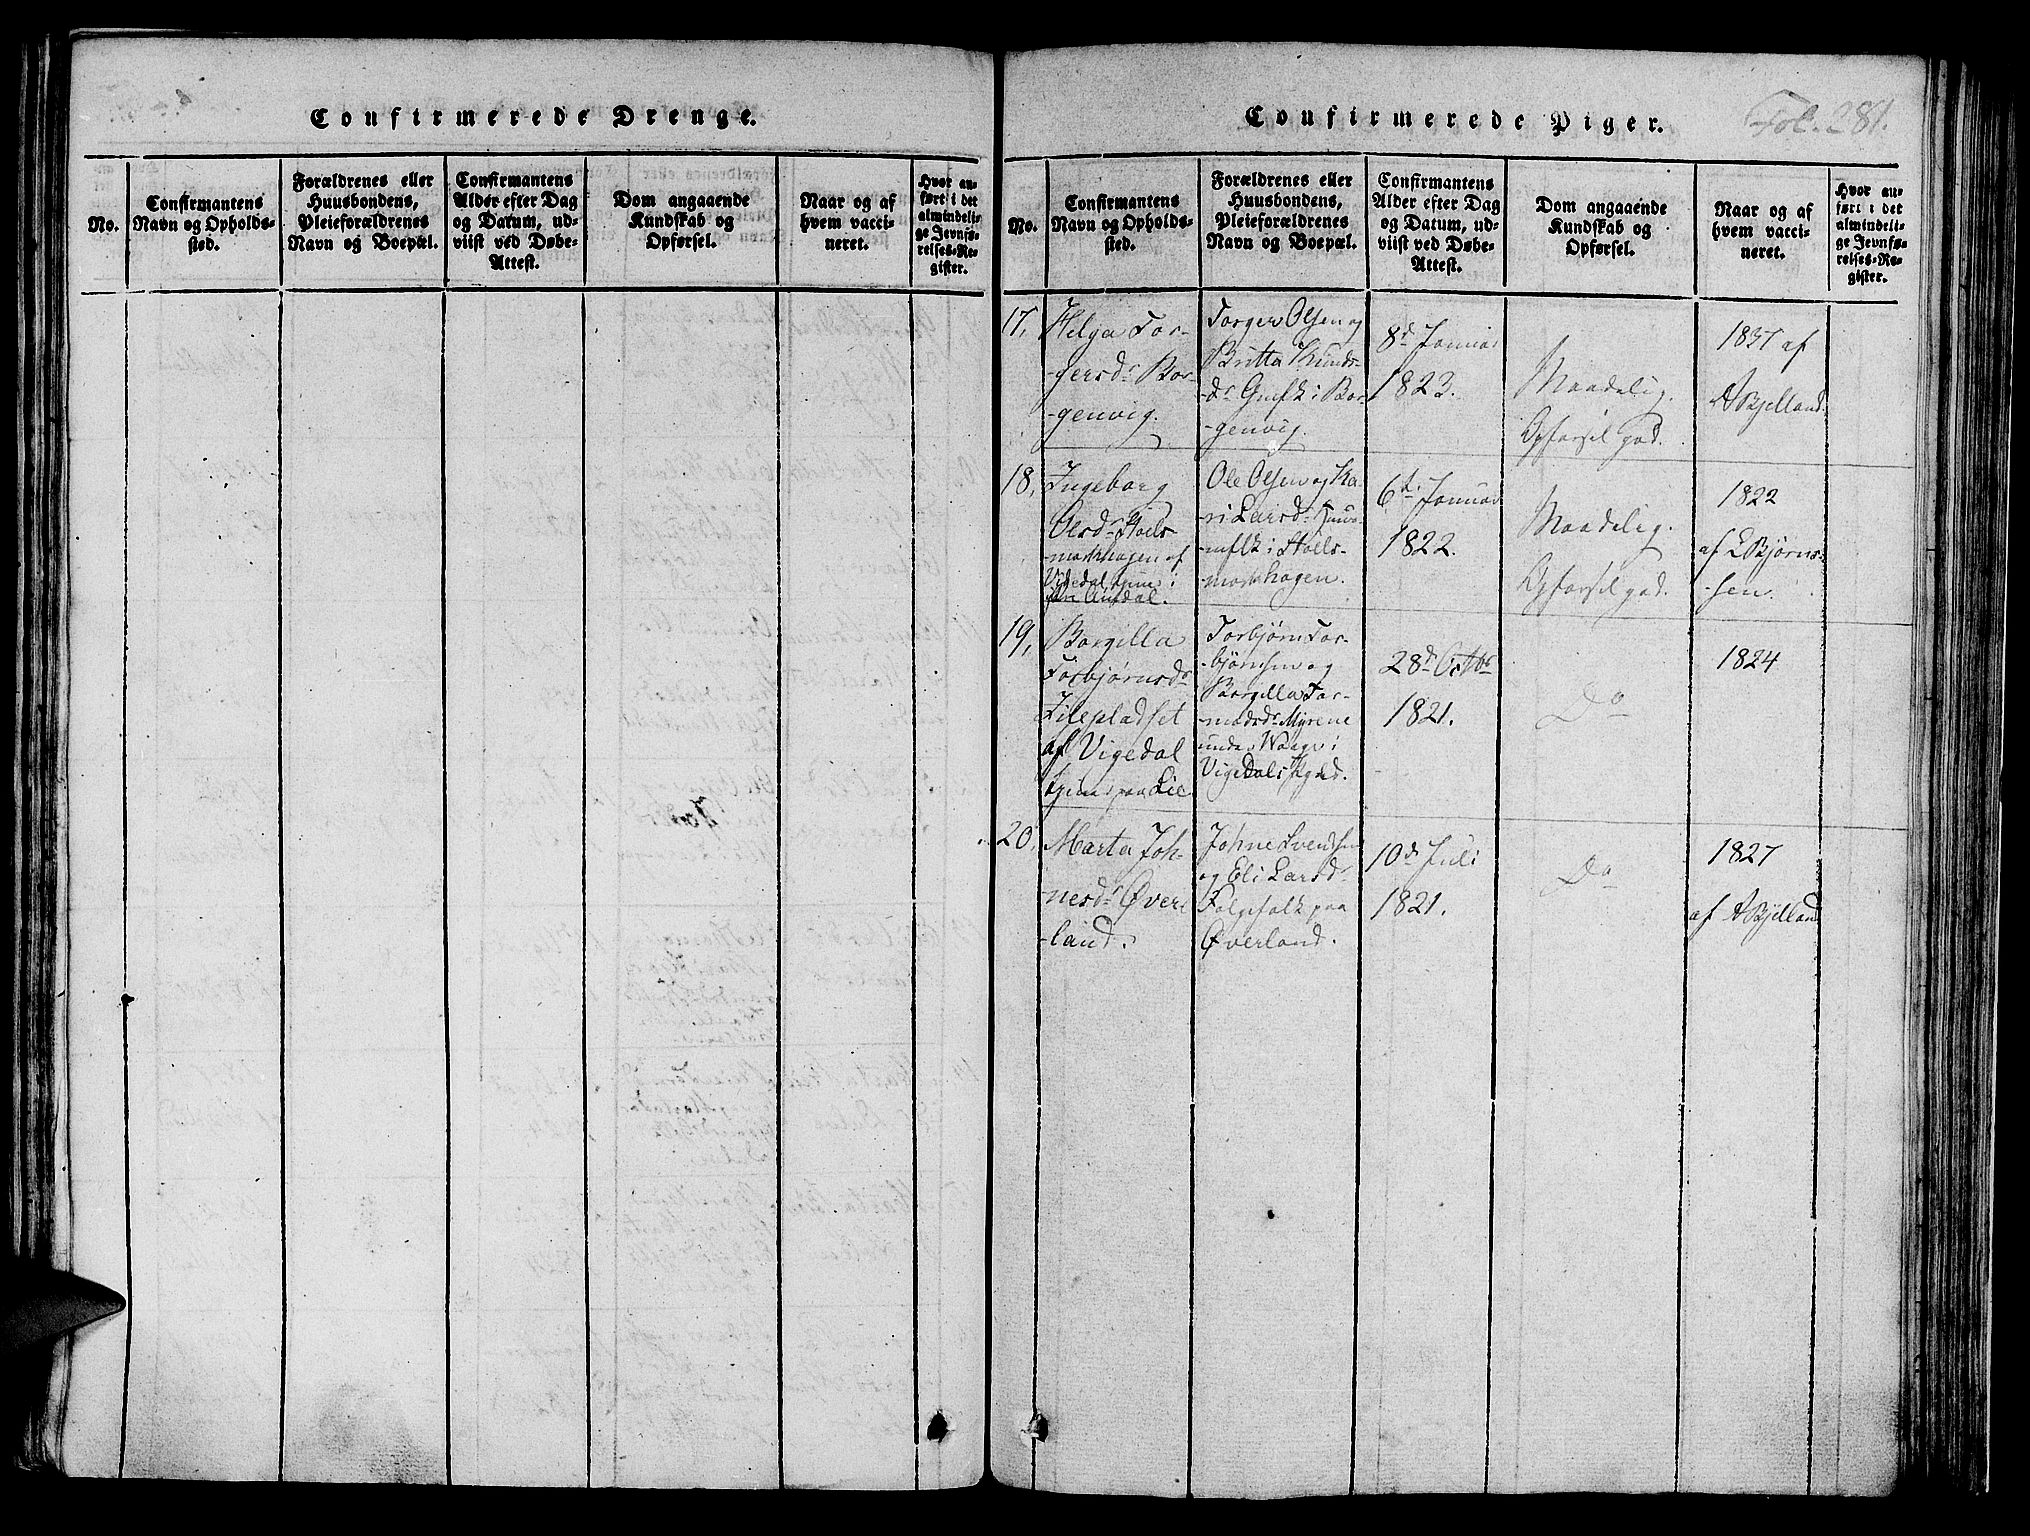 Confirmerede Drenge.
No.
Confirmantens
Navn og Opholds-
sted.
Forældrenes eller
Huusbondens,
Pleieforældrenes
Navn og Boepæl.
Confirmantens
Alder efter Dag
og Datum, ud-
viist ved Døbe-
Attest.
Dom angaaende
Kundskab og
Opførsel.
Naar og af
hvem vacci-
neret.
Hvor an-
ført i det
almindeli-
ge Jevnfø-
relses-Re-
gister.
Confirmerede Piger.
Fol. 281.
No.
Confirmantens
Navn og Opholds-
sted.
Forældrenes eller
Huusbondens,
Pleieforældrenes
Navn og Boepæl.
Confirmantens
Alder efter Dag
og Datum, ud-
viist ved Døbe-
Attest.
Dom angaaende
Kundskab og
Opførsel.
Naar og af
hvem vacci-
neret.
Hvor an-
ført i det
almindeli-
ge Jevnfø-
relses-Re-
gister.
17,
Helga Tor-
gersdr Bor-
genvig.
Torger Olsen og
Britta Knuds-
dr Gmflk i Bor-
genvig.
8d Januar
1823.
Maadelig.
Opførsel god.
1837 af
A Bjelland.
18,
Ingeborg
Olsdr Stoels-
markhagen af
Vigedal tjene i
Ole Olsen og Ka-
ri Larsdr
i Stoels-
markhagen.
6t Januar
1822.
Maadelig.
Opførsel god.
1822
af L Bjørn-
sen.
19,
Borgilla
Torbjørnsdr
Lilepladset
af Vigedal
tjener paa Lil
Torbjørn Tor-
bjørnsen og
Borgilla Tor-
modsdr Myrene
under Waage i
Vigedals Pgld.
28d Octbr
1821.
Do
1824
20,
Marta Joh-
nesdr Øver-
land.
Johne Svendsen
og Eli Larsdr
Folgefolk paa
Øverland.
10d Juli
1821.
Do
1827
af A Bjelland